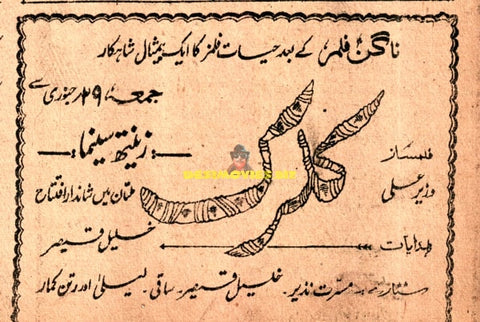 ناگن فلمز کے بعد حیات فلمز کا ایک بیمثال شاہکار
جمعہ ۲۹ جنوری سے
زینتھ سینما
ملتان میں شاندار افتتاح
کلرک
فلمساز
وزیر علی
ہدایات
خلیل قیصر
ستارے مسرت نذیر۔ خلیل قیصر۔ ساقی۔ لیلیٰ اور رتن کمار